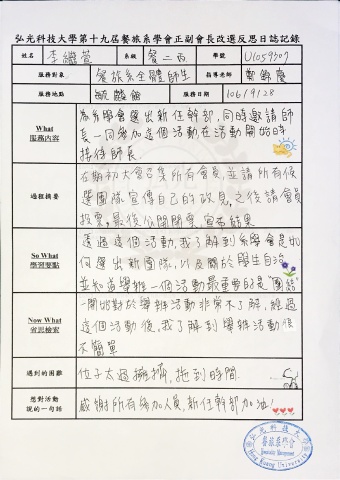 弘光科技大學第十九屆餐旅系學會正副會長改選反思日誌記錄
姓名 李繼萱 系級 餐二丙 學號 U1059307
服務對象 餐旅系全體師生 指導老師 鄭錦慶
服務地點 毓麟館 106/9/28
What
服務內容
為系學會選出新任幹部，同時邀請師
長一同參加這個活動在活動開始時
接待師長
過程摘要
在期初大會召集所有會員並請所有候
選團隊宣傳自己的政見，之後請會員
投票，最後公開開票，宣布結果
So What
學習要點
透過這個活動，我了解到系學會是如
何選出新團隊，以及關於學生自治
並知道舉辦一個活動最重要的是"團結"
Now What
省思檢索
一開始對於舉辦活動非常不了解，經過
這個活動後，我了解到舉辦活動很
不簡單
遇到的困難
位子太過擁擠，拖到時間.
想對活動
說的一句話
感謝所有參加人員，新任幹部加油！
弘光科技大學
餐旅系學會
Hung Kuang University